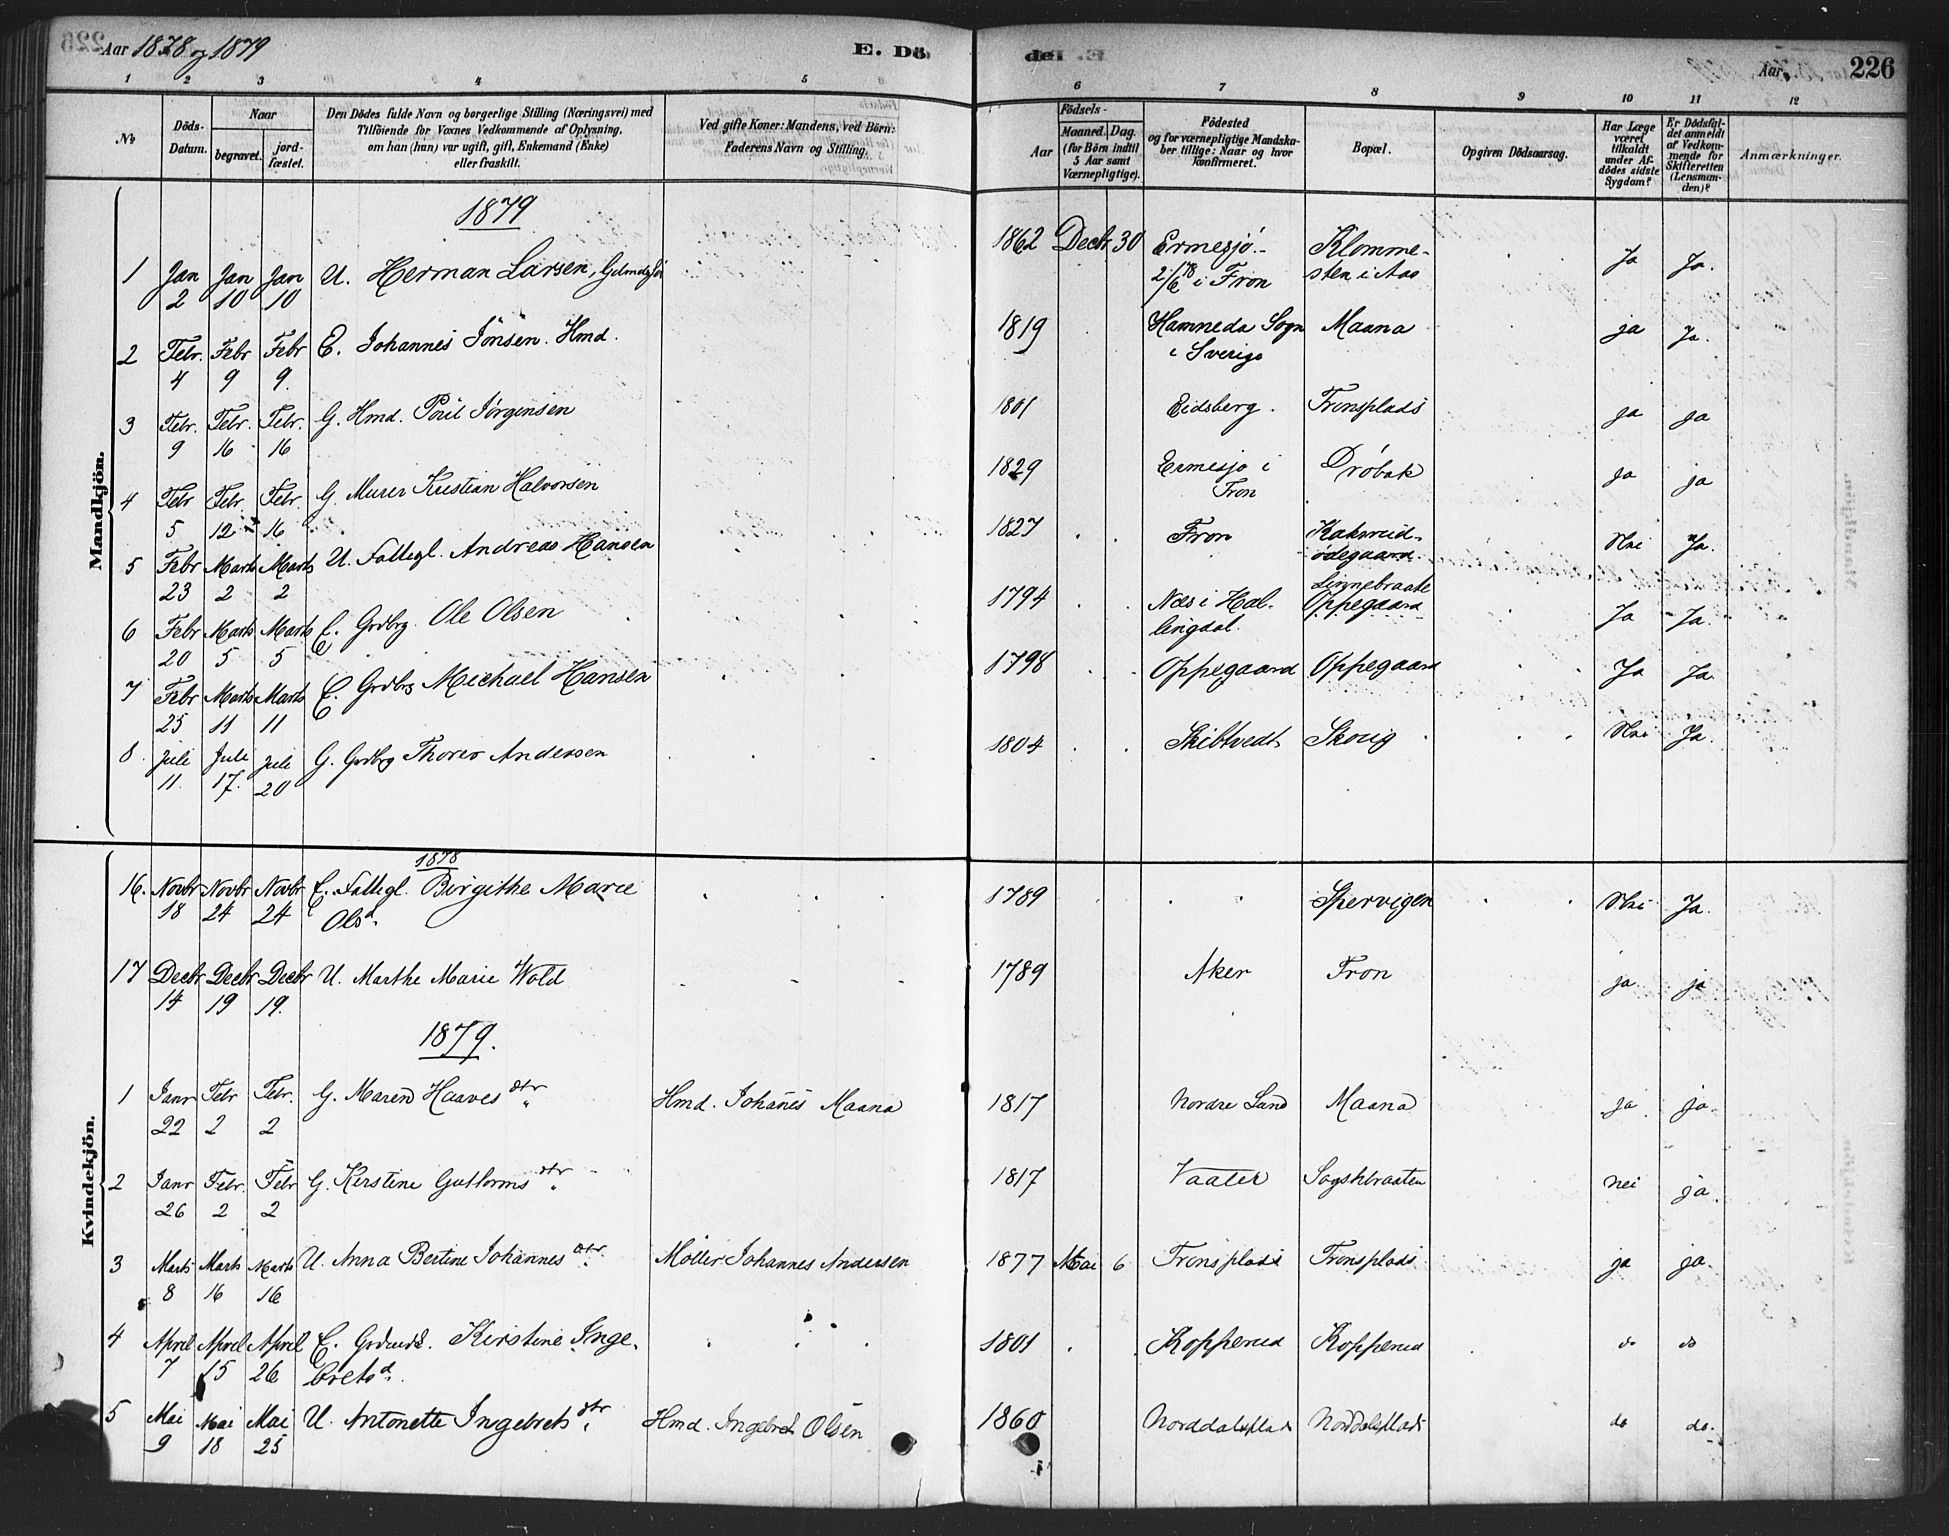 Aar 1878 og 1879
E. Dö
del
Aar
226
1 2 3 4 5 6 7 8 9 10 11 12
No
Döds-Datum.
Naar
begravet.
jord-fæstet.
Den Dödes fulde Navn og borgerlige Stilling (Næringsvei) med
Tilföiende for Voxnes Vedkommende af Oplysning,
om han (hun) var ugift, gift, Enkemand (Enke)
eller fraskilt.
Ved gifte Koner: Mandens, ved Börn:
Faderens Navn og Stilling.
Födsels-
Aar
Maaned. Dag.
(for Börn indtil
5 Aar samt
Værnepligtige).
Födested
og for værnepligtige Mandska-
ber tillige: Naar og hvor
konfirmeret.
Bopæl.
Opgiven Dödsaarsag.
Har Læge
været
tilkaldt
under Af-
dödes sidste
Sygdom?
Er Dödsfal-
det anmeldt
af Vedkom-
mende for
Skifteretten
(Lensman-
den)?
Anmærkninger.
Mandkjön.
1879
1 Jan 2 Jan 10 Jan 10 U. Herman Larsen, 1862 Decbr 30 Ermesjö.- 2/6 78 i Fron Klomme-sten i Aas Ja Ja.
2 Febr. 4 Febr 9 Febr 9. E. Johannes Jönsen. Hmd. 1819 Hamneda Sogn i Sverige Maana ja Ja.
3 Febr. 9 Febr. 16 Febr. 16 G. Hmd. Poul Jörgensen 1801 Eidsberg. Fronsplads ja ja
4 Febr 5 Febr. 12 Febr. 16 G. Murer Kristian Halvorsen 1829 Ermesjo i Fron Dröbak ja ja
5 Febr 23 Marts 2 Marts 2 U. Fattigl. Andreas Hansen 1827 Fron ödegaard. Nei Ja.
6 Febr 20 Marts 5 Marts 5 E. Grdbrg. Ole Olsen 1794 Næs i Hal-lingdal. Linnebraate Oppegaard Ja Ja.
7 Febr 25 Marts 11 Marts 11 E. Grdbrg Michael Hansen 1798 Oppegaard Oppegaard Ja Ja.
8. Juli 11. Juli 17. Juli 20 G. Grdbrg Thorer Andersen 1804 Skibtvedt Skoug Nei Ja.
Kvindekjön.
1878
16. Novbr 18 Novbr 24 Novbr 24 E. Fattigl. Birgithe Marie Olsd. 1789 Spervigen Nei Ja.
17 Decbr 14 Decbr 19 Decbr 19. U. Marthe Marie Wold 1789 Aker Fron ja ja
1879.
1 Janr 22 Febr 2 Febr. 2 G. Maren Haaves dtr. Hmd. Johanes Maana 1817 Nordre Land Maana ja. ja.
2 Janr 26 Febr. 2 Febr 2 G. Kerstine Guttorms dtr. 1817 Vaaler Sagstubraaten nei ja.
3 Marts 8 Marts 16 Marts 16 U. Anna Bertine Johannes dtr. Möller Johannes Andersen 1877 Mai 6 Fronsplads Fronsplads ja ja.
4 April 7 April 15 April 26 E. Kirstine Inge-bretsd. 1801 Kopperud Kopperud do do
5 Mai 9 Mai 18 Mai 25 U. Antonette Ingebrets dtr. Hmd. Ingebret Olsen 1860 Norddalsplads Norddalsplads do do.